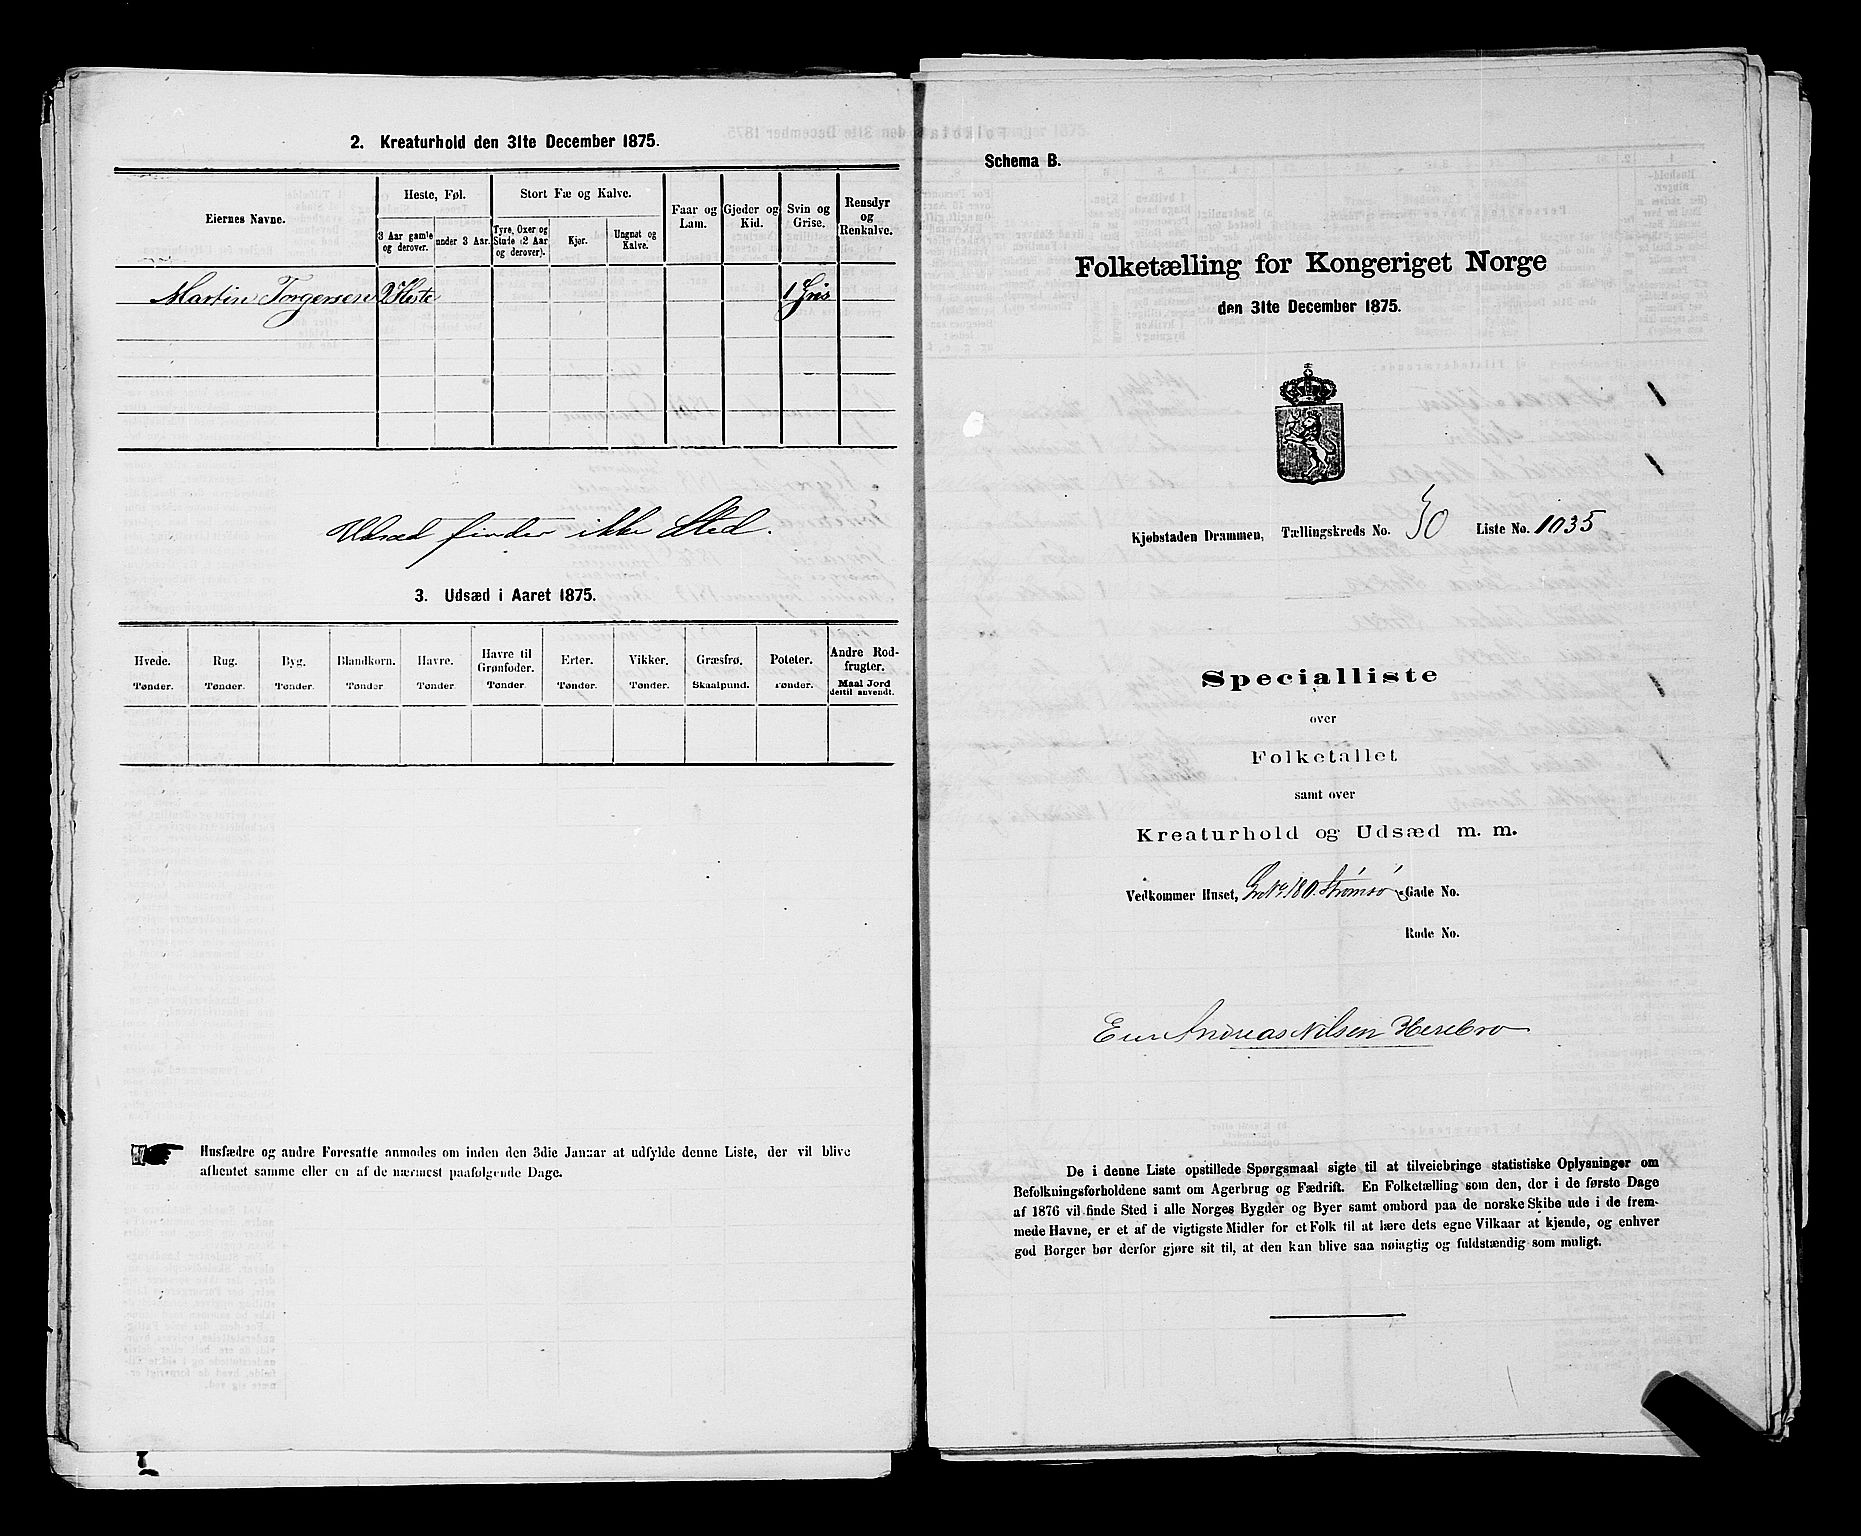 2. Kreaturhold den 31te December 1875.
Eiernes Navne.
Heste, Føl.
3 Aar gamle og derover.
under 3 Aar.
Stort Fæ og Kalve.
Tyre, Oxer og Stude (2 Aar og derover).
Kjør.
Ungnøt og Kalve.
Faar og Lam.
Gjeder og Kid.
Svin og Grise.
Rensdyr og Renkalve.
Martin Torgersen 2 Heste 1 Gris
Udsæd finder ikke Sted.
3. Udsæd i Aaret 1875.
Hvede. Rug. Byg. Blandkorn. Havre. Havre til Grønfoder. Erter. Vikker. Græsfrø. Poteter. Andre Rodfrugter.
Tønder. Tønder. Tønder. Tønder Tønder. Tønder. Tønder. Tønder. Skaalpund. Tønder. Maal Jord dertil anvendt.
Husfædre og andre Foresatte anmodes om inden den 3die Januar at udfylde denne Liste, der vil blive
afhentet samme eller en af de nærmest paafølgende Dage.
Schema B.
Folketælling for Kongeriget Norge
den 31te December 1875.
Kjøbstaden Drammen, Tællingskreds No. 30 Liste No. 1035
Specialliste
over
Folketallet
samt over
Kreaturhold og Udsæd m. m.
Vedkommer Huset, 180. Strømsø Gade No.
Rode No.
Eier Andreas Nilsen Herebro
De i denne Liste opstillede Spørgsmaal sigte til at tilveiebringe statistiske Oplysninger om
Befolkningsforholdene samt om Agerbrug og Fædrift. En Folketælling som den, der i de første Dage
af 1876 vil finde Sted i alle Norges Bygder og Byer samt ombord paa de norske Skibe ude i de frem-
mede Havne, er et af de vigtigste Midler for et Folk til at lære dets egne Vilkaar at kjende, og enhver
god Borger bør derfor gjøre sit til, at den kan blive saa nøiagtig og fuldstændig som muligt.